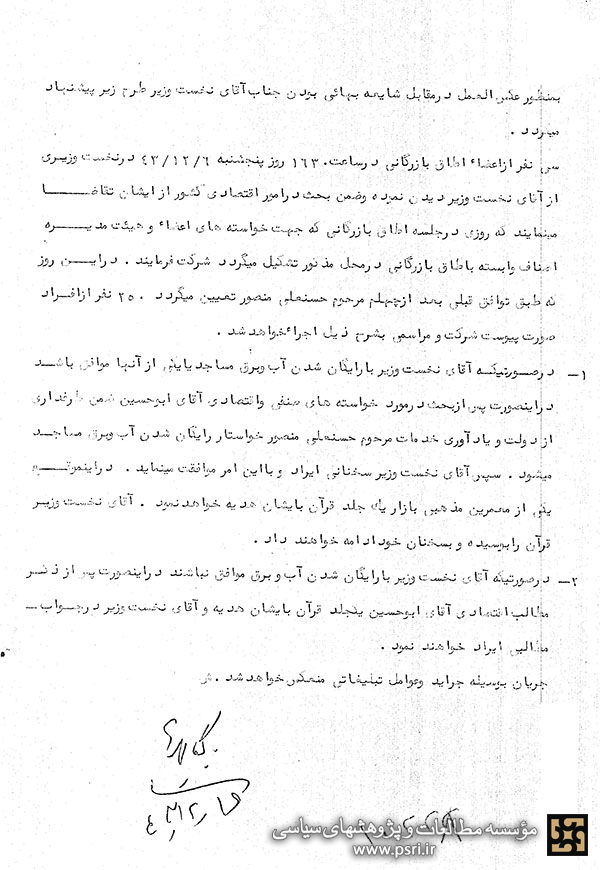 بمنظور عکس العمل درمقابل شایعه بهائی بودن جناب آقای نخست وزیر طرح زیر پیشنهاد
میگردد .
سی نفر ازاعضاء اطاق بازرگانی درساعت ۱۶۳۰ روز پنجشنبه ۴۳/۱۲/۶ درنخست وزیری
از آقای نخست وزیر دیدن نموده وضمن بحث درامور اقتصادی کشور از ایشان تقاضا
مینمایند که روزی درجلسه اطاق بازرگانی که جهت خواسته های اعضاء و هیئت مدیره
اصناف وابسته باطاق بازرگانی درمحل مذکور تشکیل میگردد شرکت فرمایند . دراین روز
که طبق توافق قبلی بعد ازچهلم مرحوم حسنعلی منصور تعیین میگردد ۲۵۰ نفر ازافراد
صورت پیوست شرکت و مراسمی بشرح ذیل اجراءخواهد شد .
۱- درصورتیکه آقای نخست وزیر با رایگان شدن آب وبرق مساجد یایکی از آنها موافق باشد
دراینصورت پس ازبحث درمورد خواسته های صنفی واقتصادی آقای ابوحسین ضمن طرفداری
از دولت و یادآوری خدمات مرحوم حسنعلی منصور خواستار رایگان شدن آب وبرق مساجد
میشود . سپس آقای نخست وزیر سخنانی ایراد و بااین امر موافقت مینماید . دراینموقع
یکی از معمرین مذهبی بازار یک جلد قرآن بایشان هدیه خواهد نمود . آقای نخست وزیر
قرآن رابوسیده و بسخنان خود ادامه خواهند داد .
۲- درصورتیکه آقای نخست وزیر با رایگان شدن آب و برق موافق نباشند دراینصورت پس از ذکر
مطالب اقتصادی آقای ابوحسین یکجلد قرآن بایشان هدیه و آقای نخست وزیر درجواب -
مطالبی ایراد خواهند نمود .
جریان بوسیله جراید وعوامل تبلیغاتی منعکس خواهد شد .
مؤسسه مطالعات و پژوهشهای سیاسی
www.psri.ir